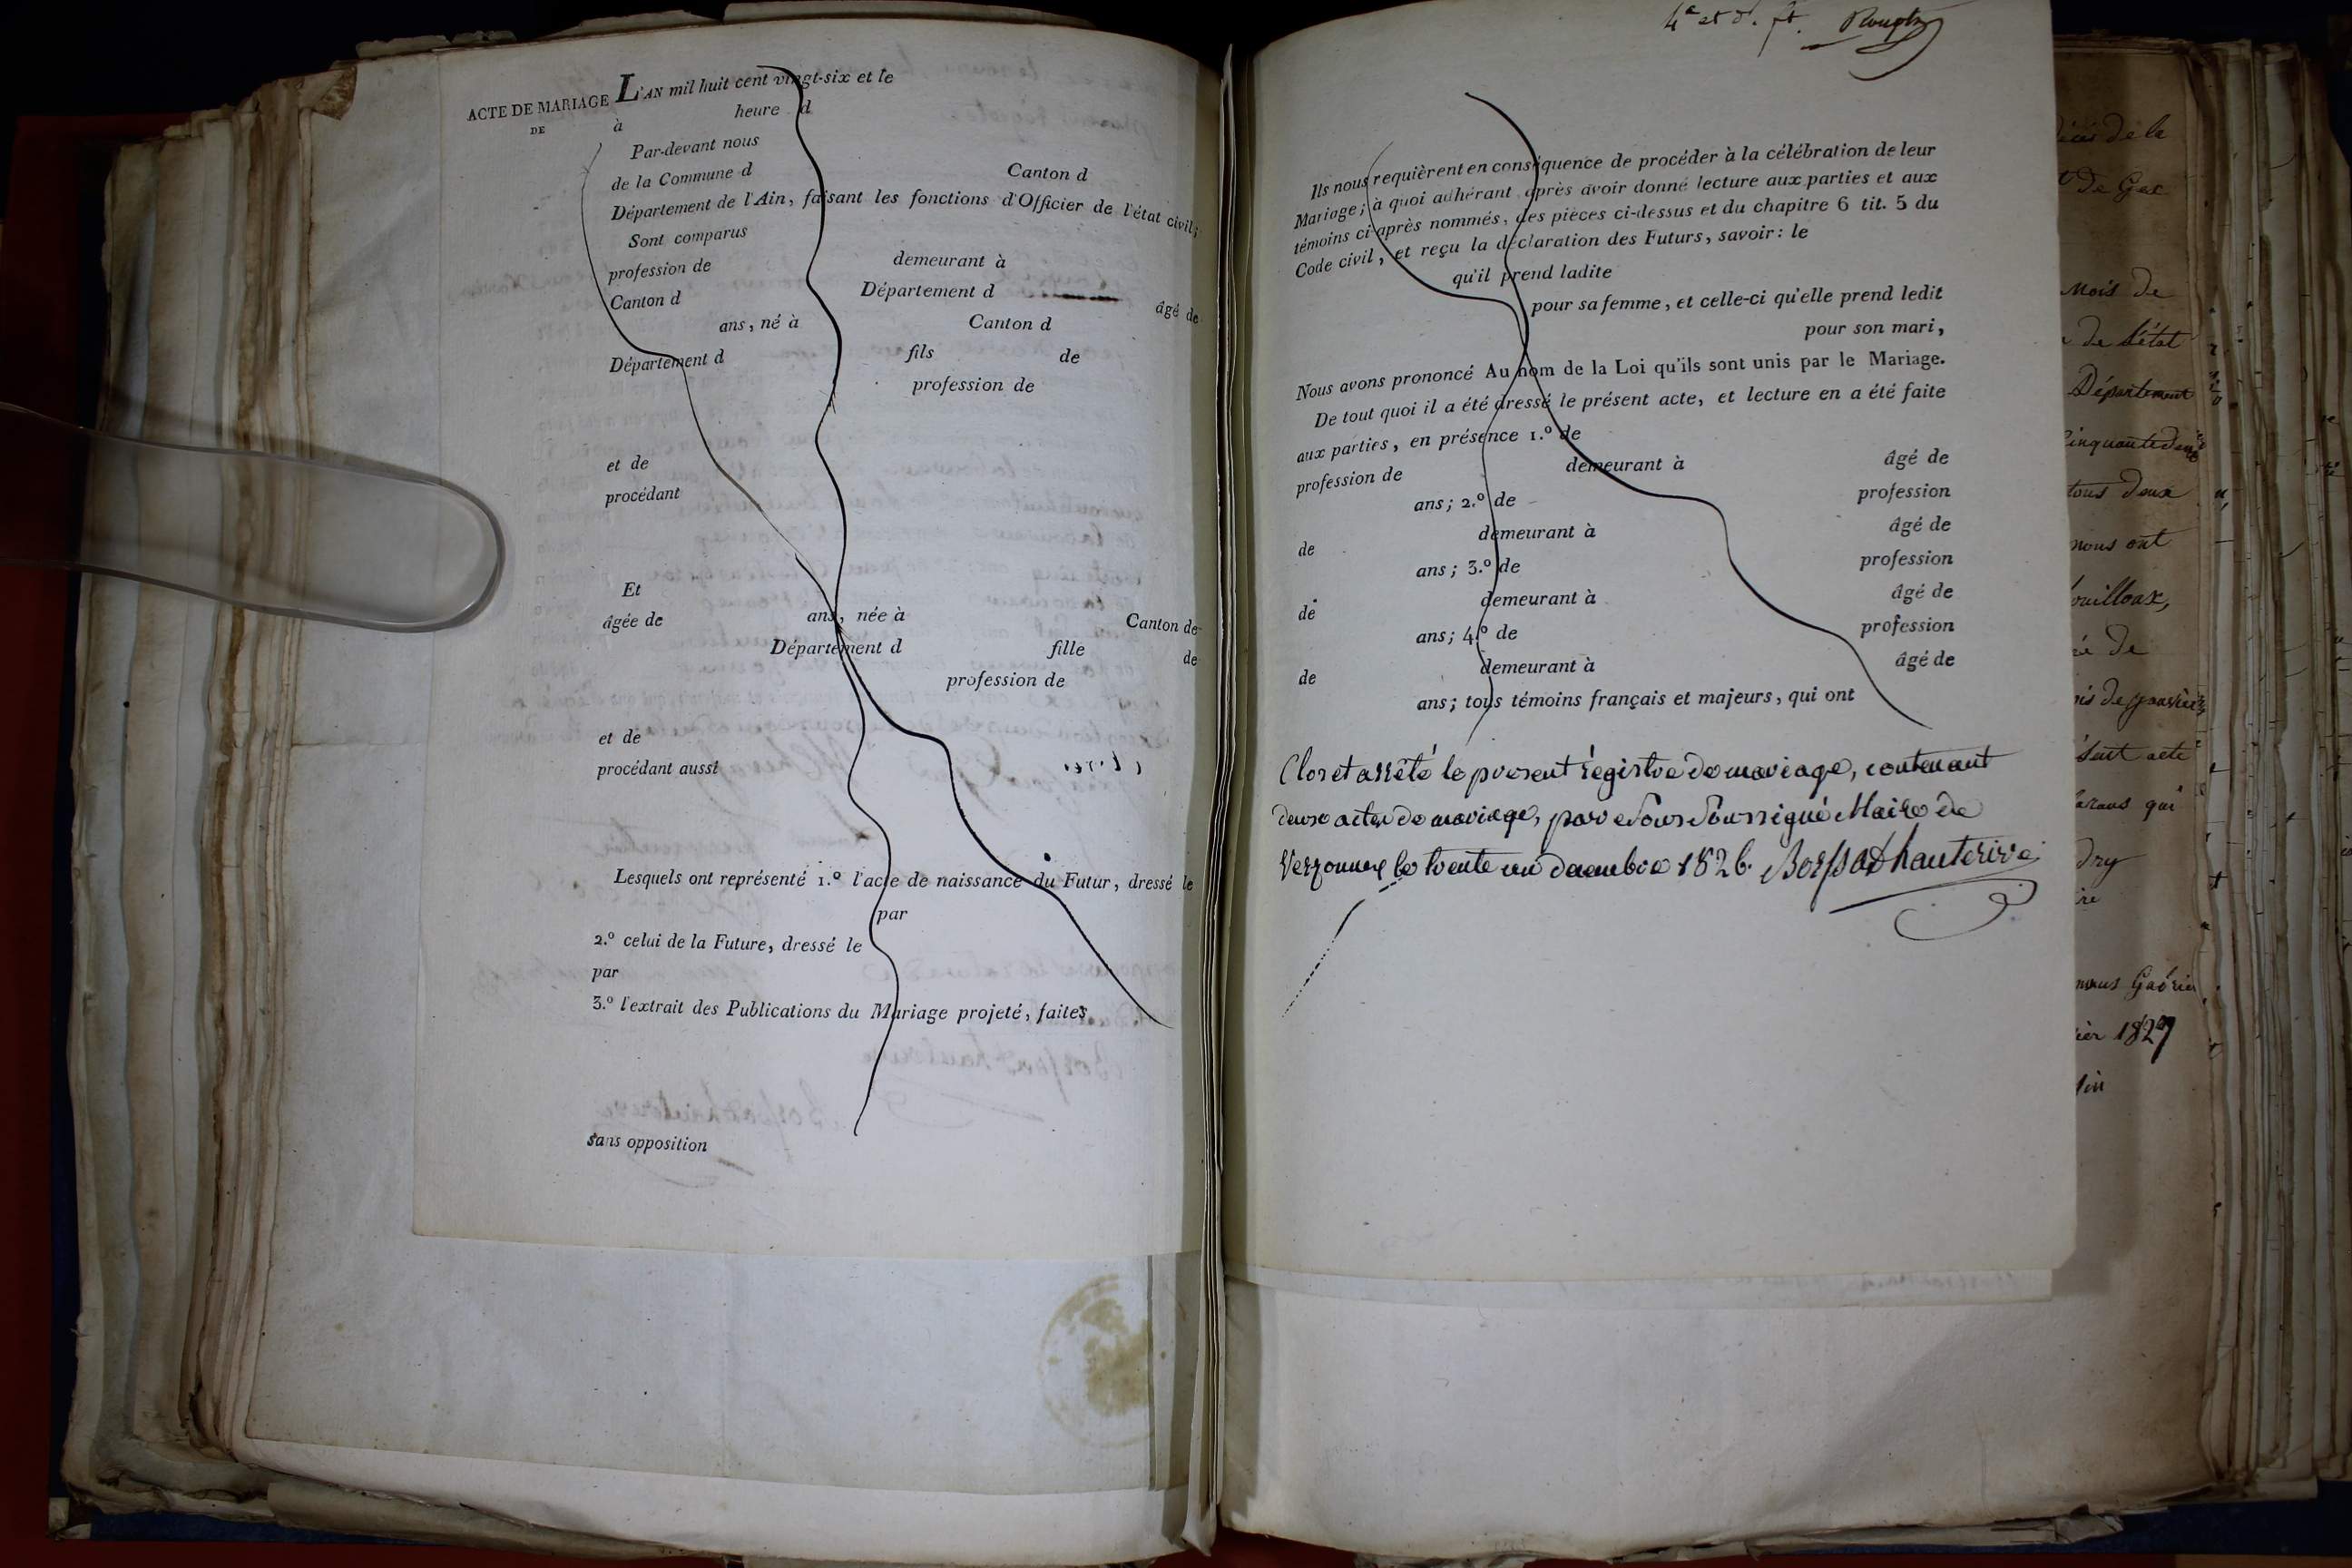 ACTE DE MARIAGE
DE
L'AN mil huit cent vingt-six et le
à heure d
Par-devant nous
de la Commune d Canton d
Département de l'Ain, faisant les fonctions d'Officier de l'état civil;
Sont comparus
profession de demeurant à
Canton d Département d âgé de
ans, né à Canton d
Département d fils de
profession de
et de
procédant
Et
âgée de ans, née à Canton de
Département d fille de
profession de
et de
procédant aussi
Lesquels ont représenté 1.º l'acte de naissance du Futur, dressé le
par
2.º celui de la Future, dressé le
par
3.º l'extrait des Publications du Mariage projeté, faites
sans opposition
4e et d. ft.
Ils nous requièrent en conséquence de procéder à la célébration de leur
Mariage; à quoi adhérant après avoir donné lecture aux parties et aux
témoins ci-après nommés, des pièces ci-dessus et du chapitre 6 tit. 5 du
Code civil, et reçu la déclaration des Futurs, savoir: le
qu'il prend ladite
pour sa femme, et celle-ci qu'elle prend ledit
pour son mari,
Nous avons prononcé Au nom de la Loi qu'ils sont unis par le Mariage.
De tout quoi il a été dressé le présent acte, et lecture en a été faite
aux parties, en présence 1.º de
profession de demeurant à âgé de
ans; 2.º de profession
de demeurant à âgé de
ans; 3.º de profession
de demeurant à âgé de
ans; 4.º de profession
de demeurant à âgé de
ans; tous témoins français et majeurs, qui ont
Clos et arrêté le present régistre de mariage, contenant
deux actes de mariage, par nous Soussigné Maire de
Verzonnex le trente un decembre 1826. Borssat dhauterive
de la
de Gex
mois de
de l'état
Département
Cinquante deux
tous deux
nous ont
ouilloux,
de
de janvier
Suit acte
qui
dry
nous
1827